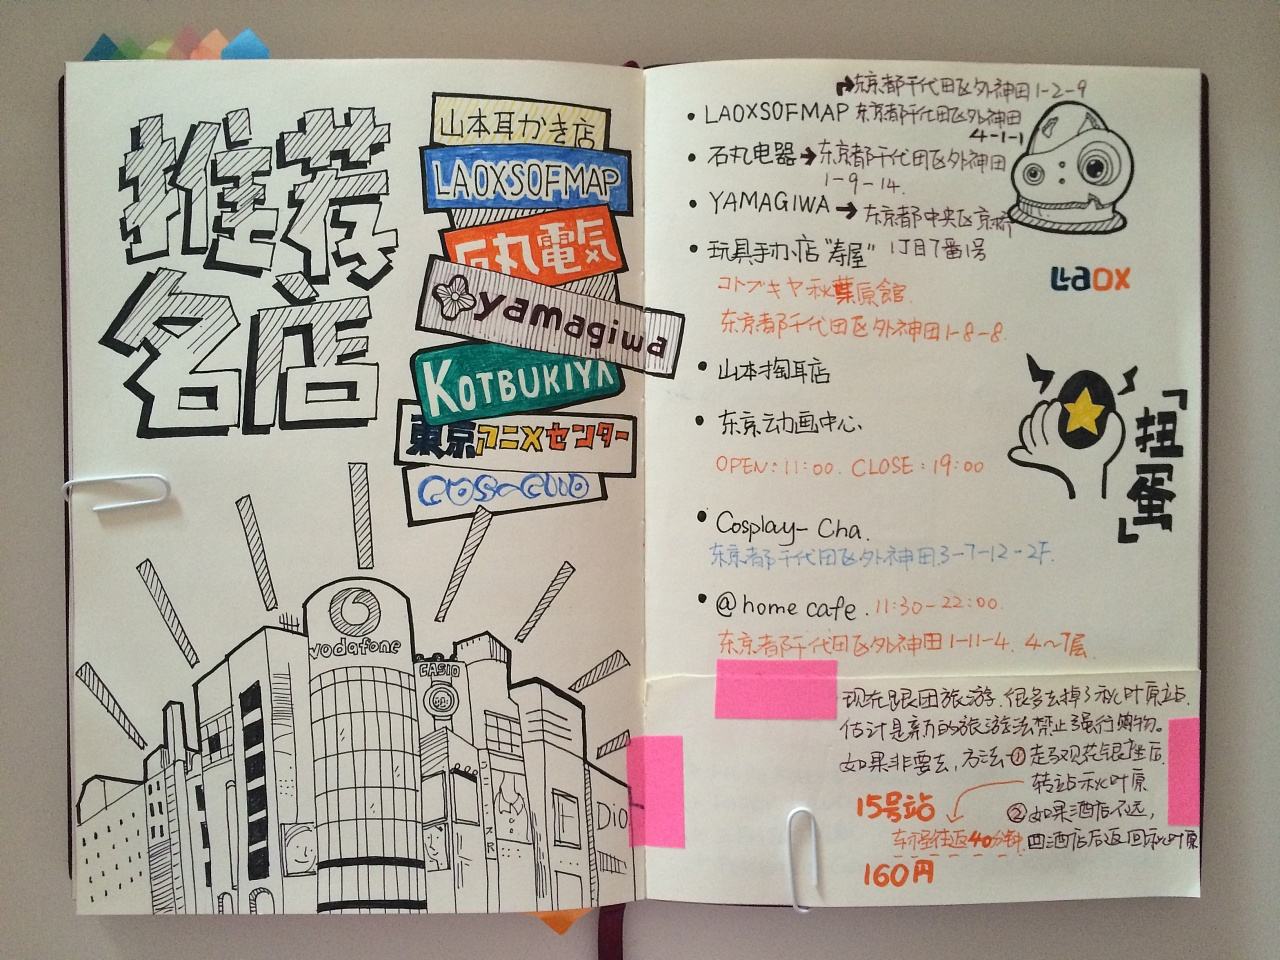 推荐
名店
山本耳かき店
LAOXSOFMAP
石丸電気
yamagiwa
KOTBUKIYA
東京アニメセンター
vodafone
CASIO
DiO
东京都千代田区外神田1-2-9
LAOXSOFMAP 东京都千代田区外神田
4-1-1
石丸电器→东京都千代田区外神田
1-9-14.
YAMAGIWA → 东京都中央区京桥
玩具手办店"寿屋" 1丁目7番1号
コトブキヤ秋葉原館.
东京都千代田区外神田1-8-8.
Laox
山本掏耳店
东京动画中心.
OPEN:11:00. CLOSE:19:00
「扭蛋」
Cosplay-Cha.
东京都千代田区外神田.3-7-12-2F.
@home cafe. 11:30-22:00.
东京都千代田区外神田1-11-4. 4~7层.
现在跟团旅游.很多去掉了秋叶原站.
估计是新的旅游法禁止强行购物。
如果非要去,方法①走马观花银座后.
转站秋叶原
15号站 ②如果酒店不远,
车程往返40分钟. 回酒店后返回秋叶原
160円